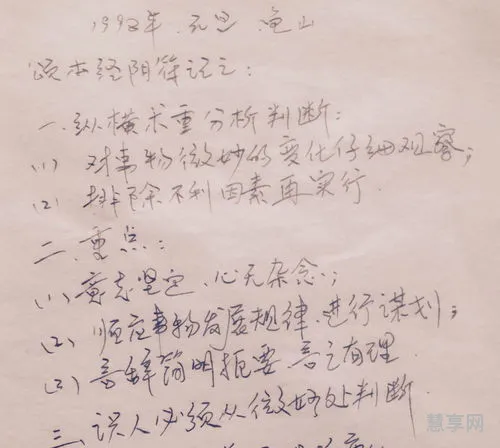 1992年.元旦.龟山
颂本经阴符记之:
一.纵横术重分析判断:
(1) 对事物微妙的变化仔细观察;
(2) 排除不利因素再实行.
二.重点:
(1) 意志坚定、心无杂念;
(2) 顺应事物发展规律、进行谋划;
(3) 言辞简明扼要、言之有理.
三.识人必须从微妙处判断.
慧享网